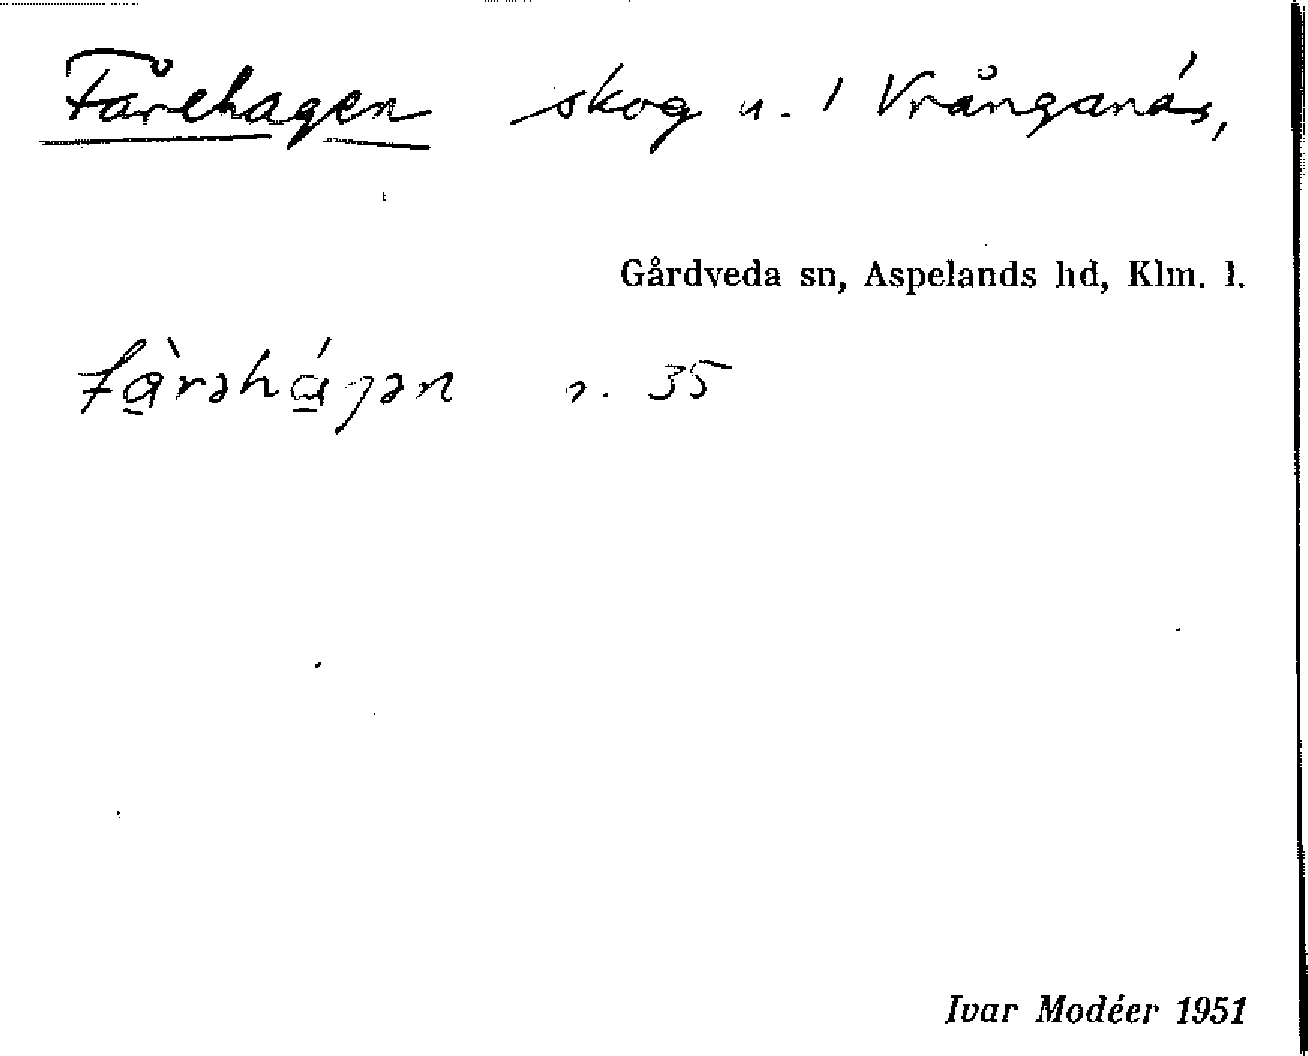 Fårehagen skog u. 1 Vrånganäs,
Gårdveda sn, Aspelands hd, Klm. l.
fàrəhágən s. 35
Ivar Modéer 1951